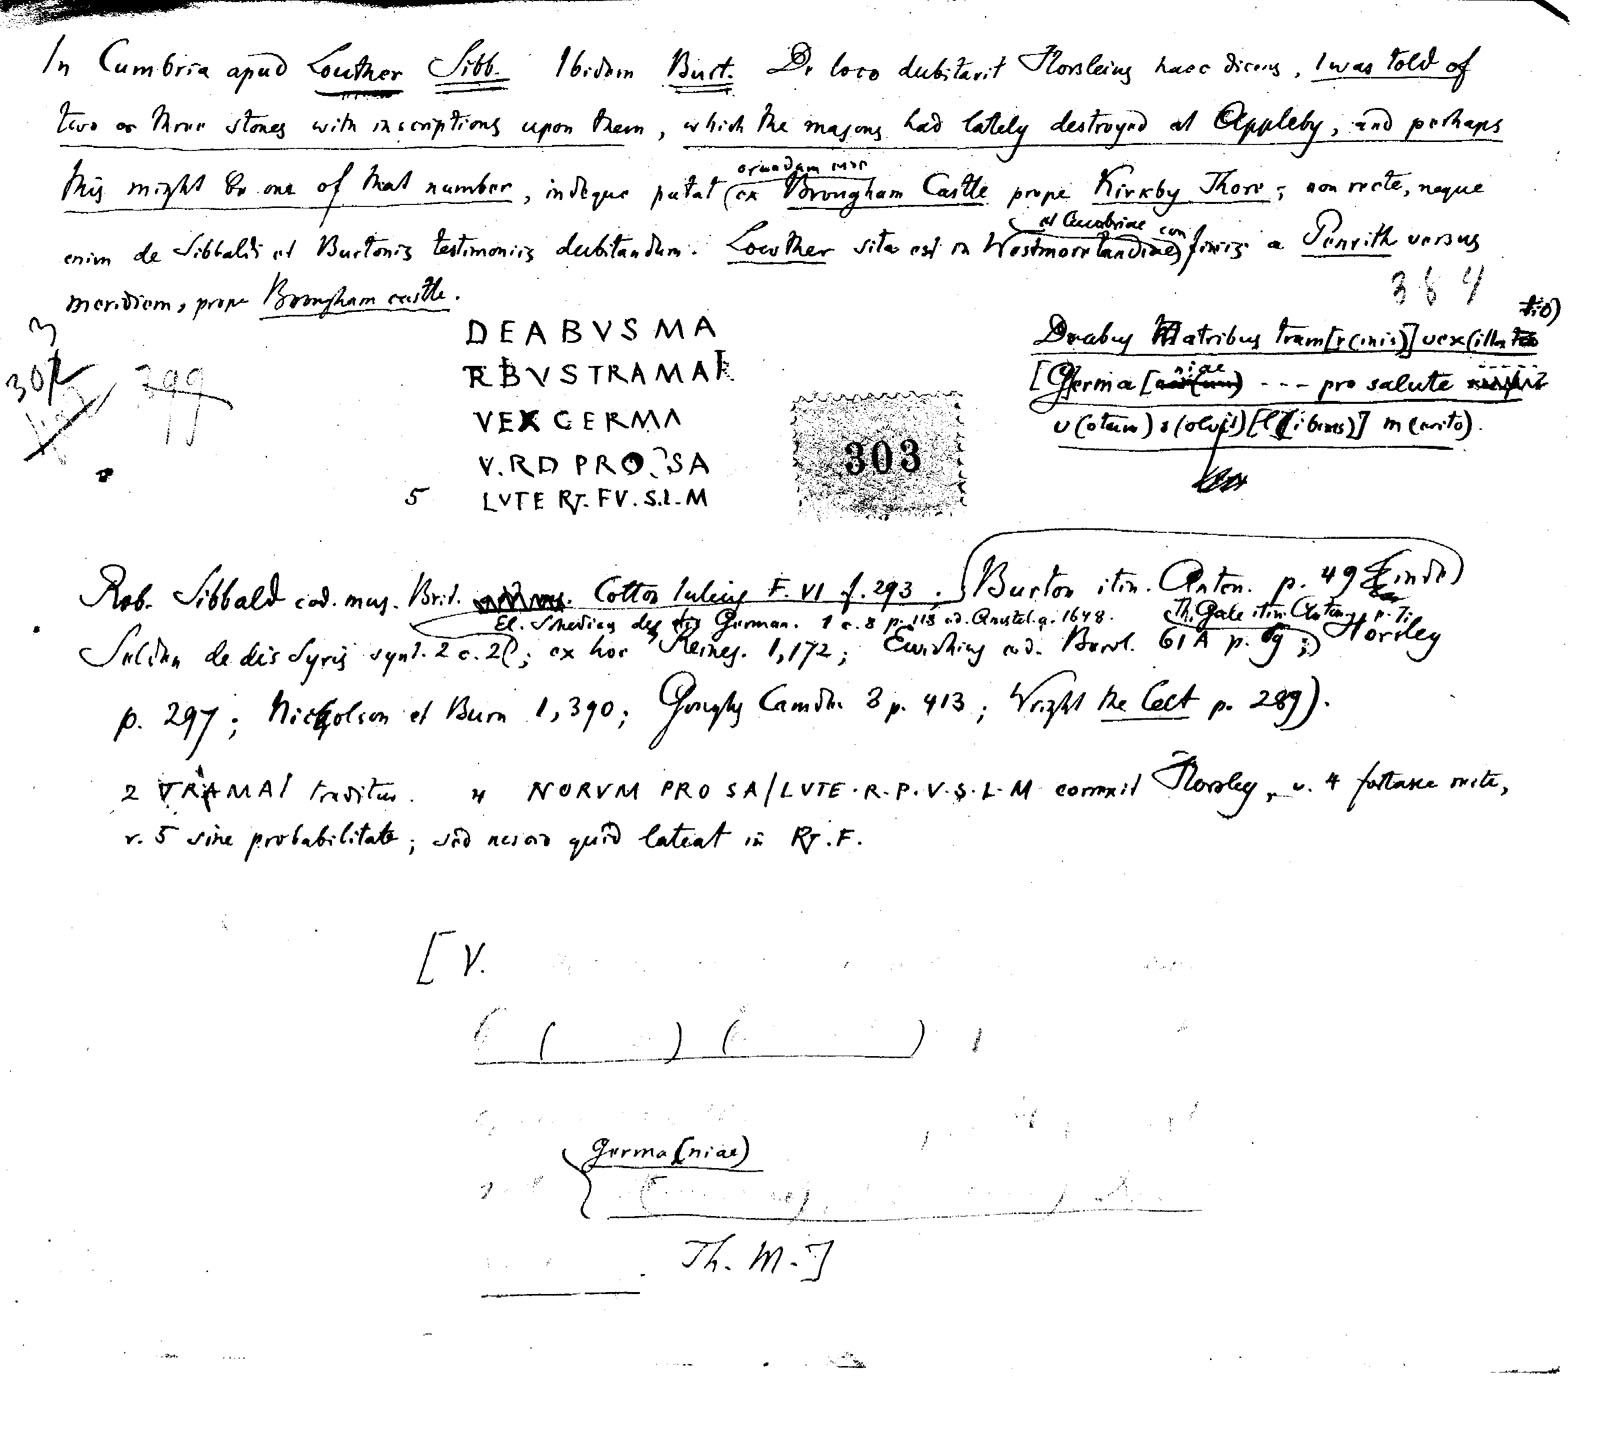 In Cumbria apud Louther Sibb. Ibidem Burt. De loco dubitavit Horsleius haec dicens, I was told of
two or three stones with inscriptions upon them, which the masons had lately destroyed at Appleby, and perhaps
this might be one of that number, indeque putat
ex Brougham Castle prope Kirkby Thore; non recte, neque
et Cumbriae con
enim de Sibbaldi et Burtonis testimoniis dubitandum. Lowther sita est in Westmorelandiae finiis a Penrith versus
meridiem, prope Brougham castle.
384
3
302
399
DEABVSMA
RBVSTRAMAI
VEX GERMA
V.RD PRO SA
5 LVTE RJ. FV.S.L.M
303
tio)
Deabus Matribus tram[r(inis)] vex(illa
[Germa[niae --- pro salute
v(otum) s(olvit) [l(ibens)] m(erito).
Rob. Sibbald cod. mus. Brit. Cotton Iulius F. VI f. 293; (Burton itin. Anton. p. 49 (inde)
El. Schedius de dis German. 1 c. 8 p. 113 ed. Amstel. a. 1648. Th. Gale itin. Anton. p. 7;
Selden de dis Syris synt. 2 c. 2; ex hoc Reines. 1,172; cod. 61 A p. 69; Horsley
p. 297; Nicholson et Burn 1,390; Goughs Camden 3 p. 413; Wright the Celt p. 289).
2 TRAMAI traditur. 4 NORVM PRO SA/LVTE.R.P.V.S.L.M correxit Horsley, v. 4 fortasse recte,
v. 5 sine probabilitate; sed nescio quid lateat in RJ.F.
[V.
Germa(niae)
Th. M.]